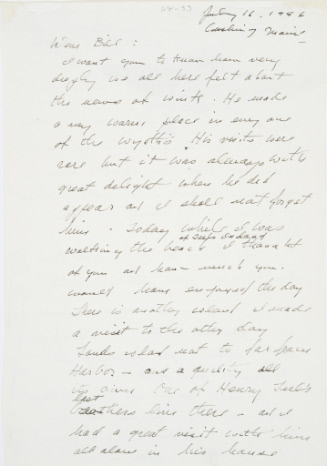 July 16, 1986
Cushing Maine
Dear Bill:
I want you to know how very
deeply we all here felt about
the news of . He made
a very warm place in every one
of the Wyeths. His visits were
rare but it was always with
great delight when he did
appear and I shall not forget
him. Today while I was
walking the beach I thought
of you and how much you
would have enjoyed the day
There is another island I made
a visit to the other day
 Island not to far from
Harbor – and a quality all
its own. One of Henry
 lives there – and I
had a great visit with him
all alone in his house